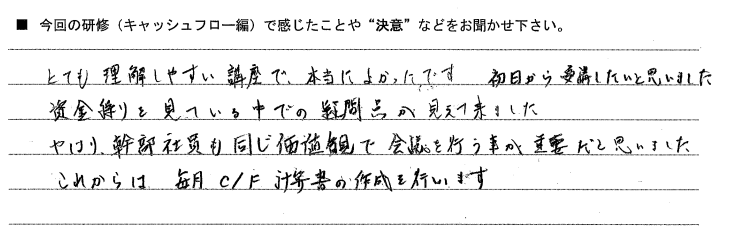 ■ 今回の研修（キャッシュフロー編）で感じたことや“決意”などをお聞かせ下さい。
とても理解しやすい講座で、本当によかったです　初日から受講したいと思いました
資金繰りを見ている中での疑問点が見えて来ました
やはり、幹部社員も同じ価値観で会議を行う事が重要だと思いました
これからは　毎月C/F計算書の作成を行います